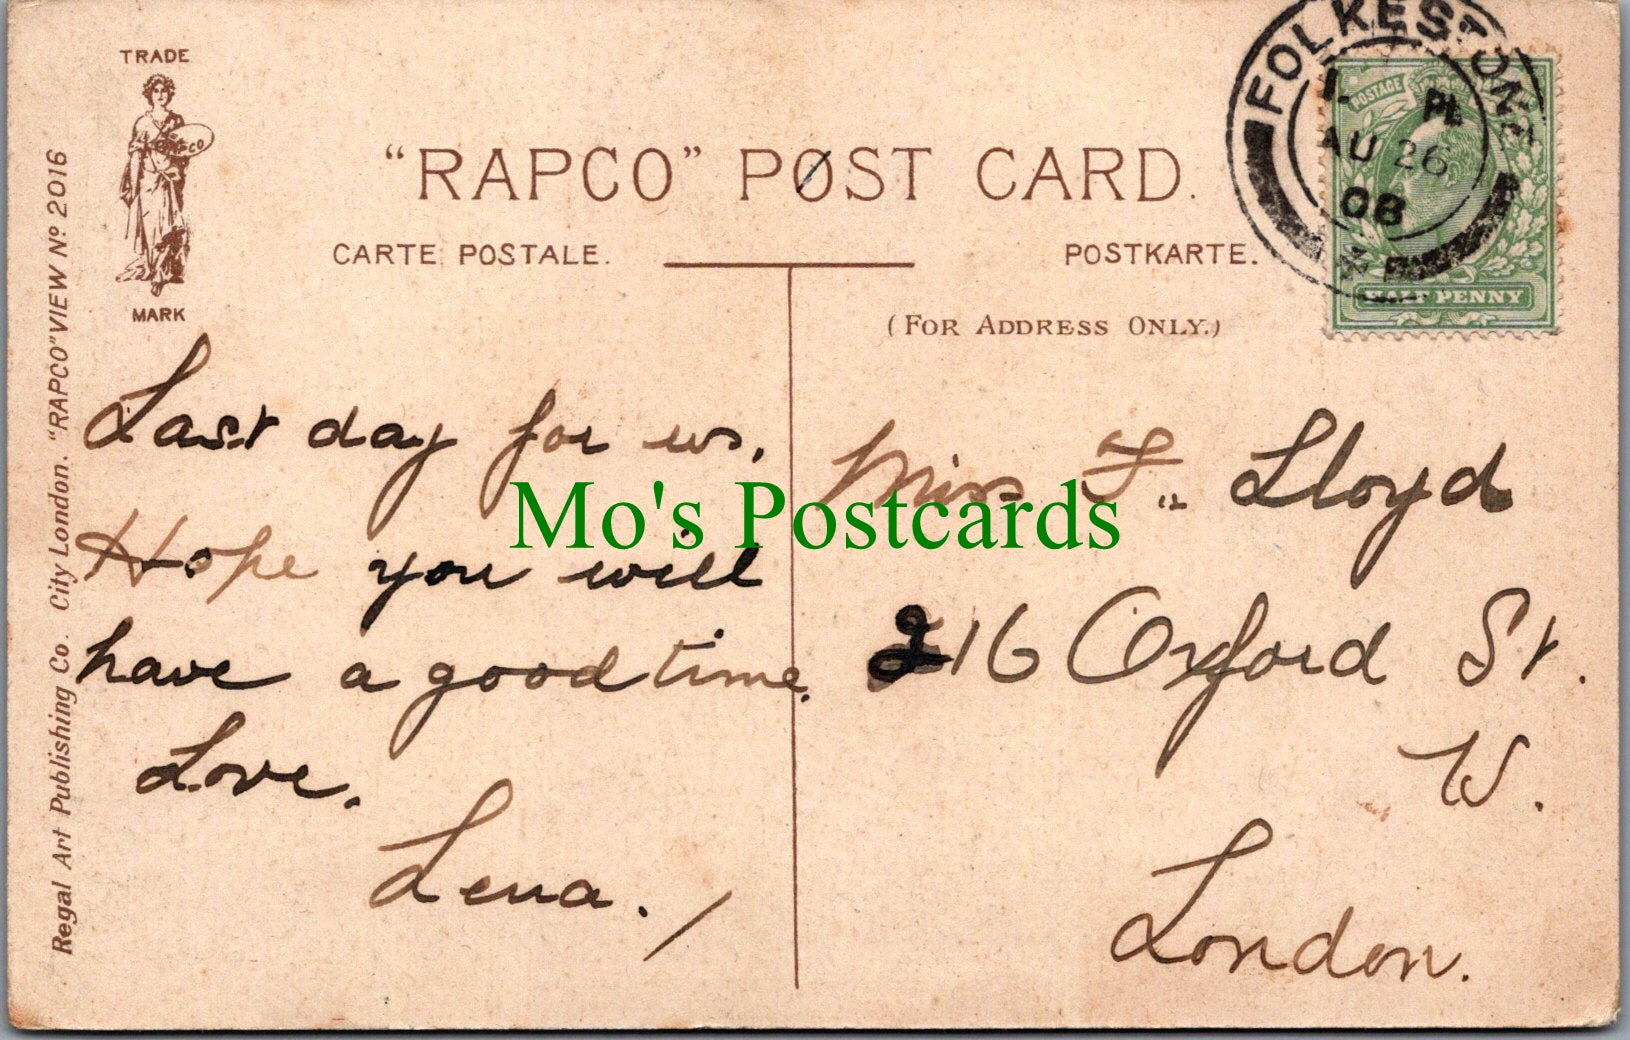 TRADE
RAPCO
MARK
"RAPCO" POST CARD.
CARTE POSTALE.
POSTKARTE.
(FOR ADDRESS ONLY.)
Regal Art Publishing Co. City London. "RAPCO" VIEW No 2016
FOLKESTONE
AU 26
08
POSTAGE
HALF PENNY
Last day for us.
Hope you will
have a good time.
Love.
Lena.
Mo's Postcards
Miss F. Lloyd
216 Oxford St.
W.
London.